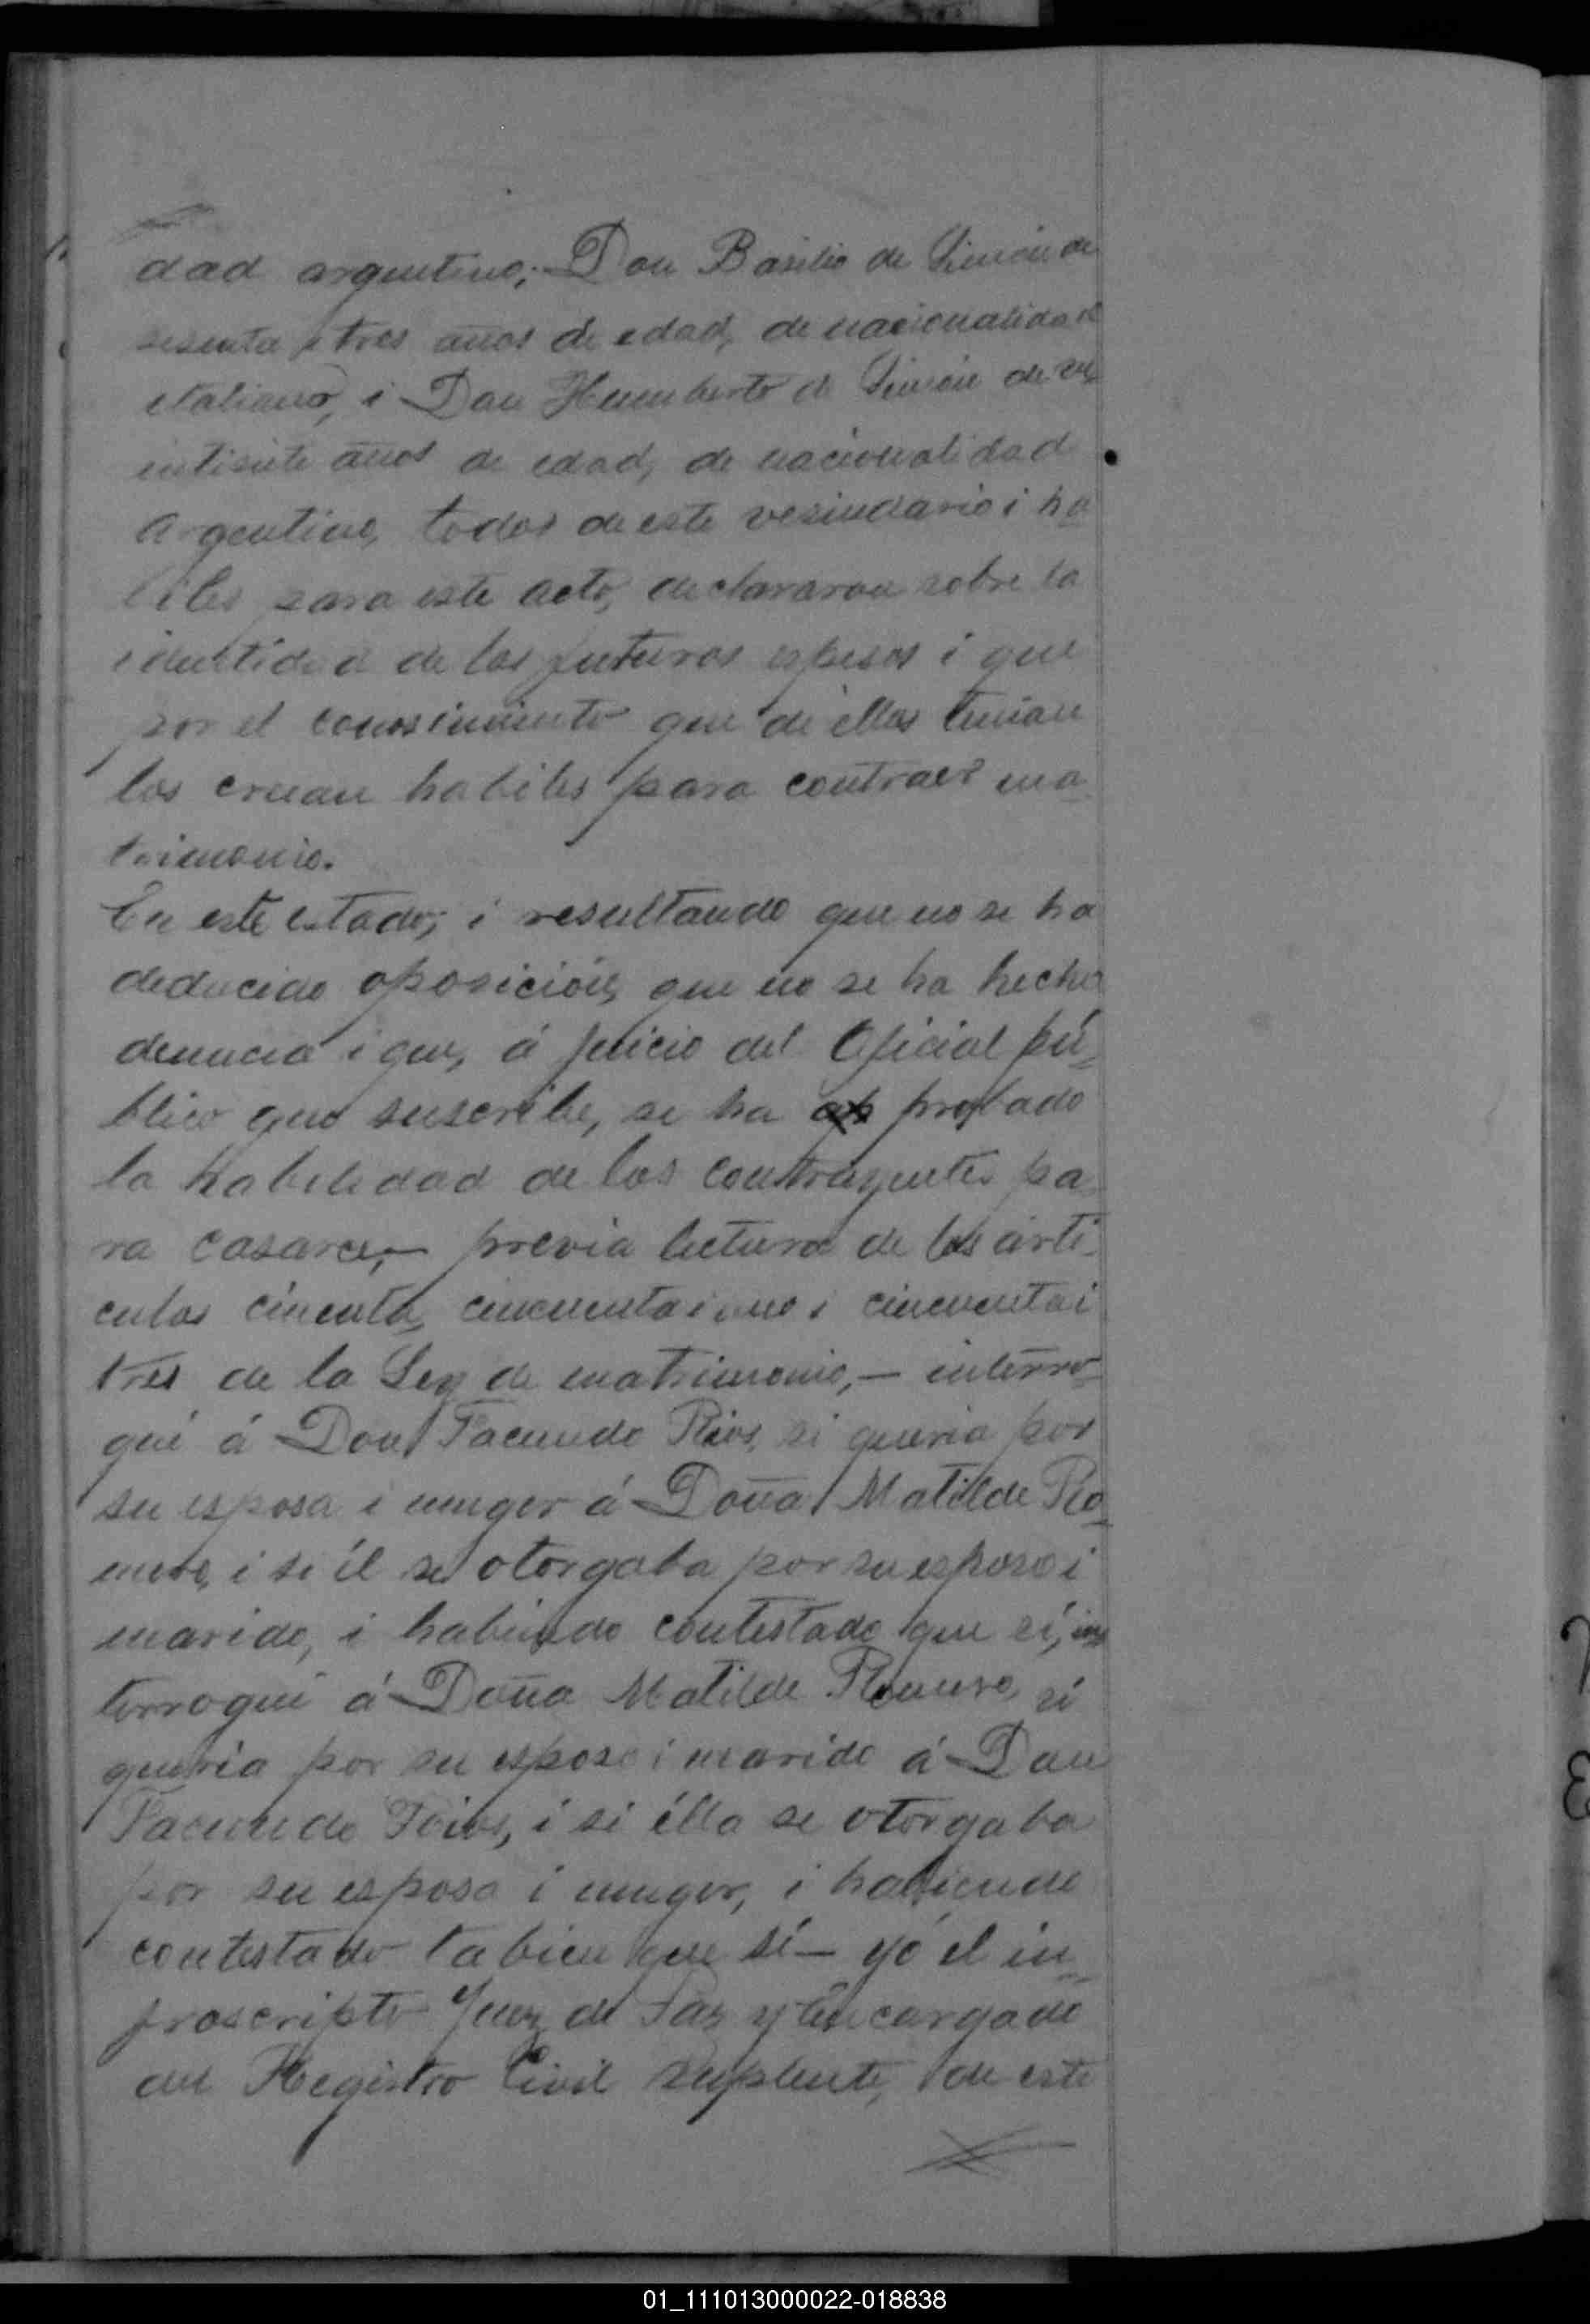 dad argentino; Don Basilio de Simón de
sesenta i tres años de edad, de nacionalidad
italiano, i Don Humberto de Simón de ve
intisiete años de edad, de nacionalidad
Argentino, todos de este vesindario i há
biles para este acto, declararon sobre la
identidad de los futuros esposos i que
por el conosimiento que de éllos tenian
los creian habiles para contraer ma_
trimonio.
En este estado; i resultando que no se ha
deducido oposición, que no se ha hecho
denuncia i que, á juicio del Oficial pú_
blico que suscribe, se ha probado
la habilidad de los contrayentes pa_
ra casarce,- previa lectura de los artí_
culos cincuenta, cincuenta i uno i cincuenta i
tres de la Ley de matrimonio,- interro_
gué á Don Facundo Rios, si queria por
su esposa i muger á Doña Matilde Ro_
mero, i si él se otorgaba por su esposo i
marido, i habiendo contestado que sí, in_
terrogué á Doña Matilde Romero, si
queria por su esposo i marido á Don
Facundo Rios, i si élla se otorgaba
por su esposa i muger, i habiendo
contestado tabien que sí- yo el in_
froscripto Juez de Paz y Encargado
del Registro Civil Suplente, de este
01_111013000022-018838